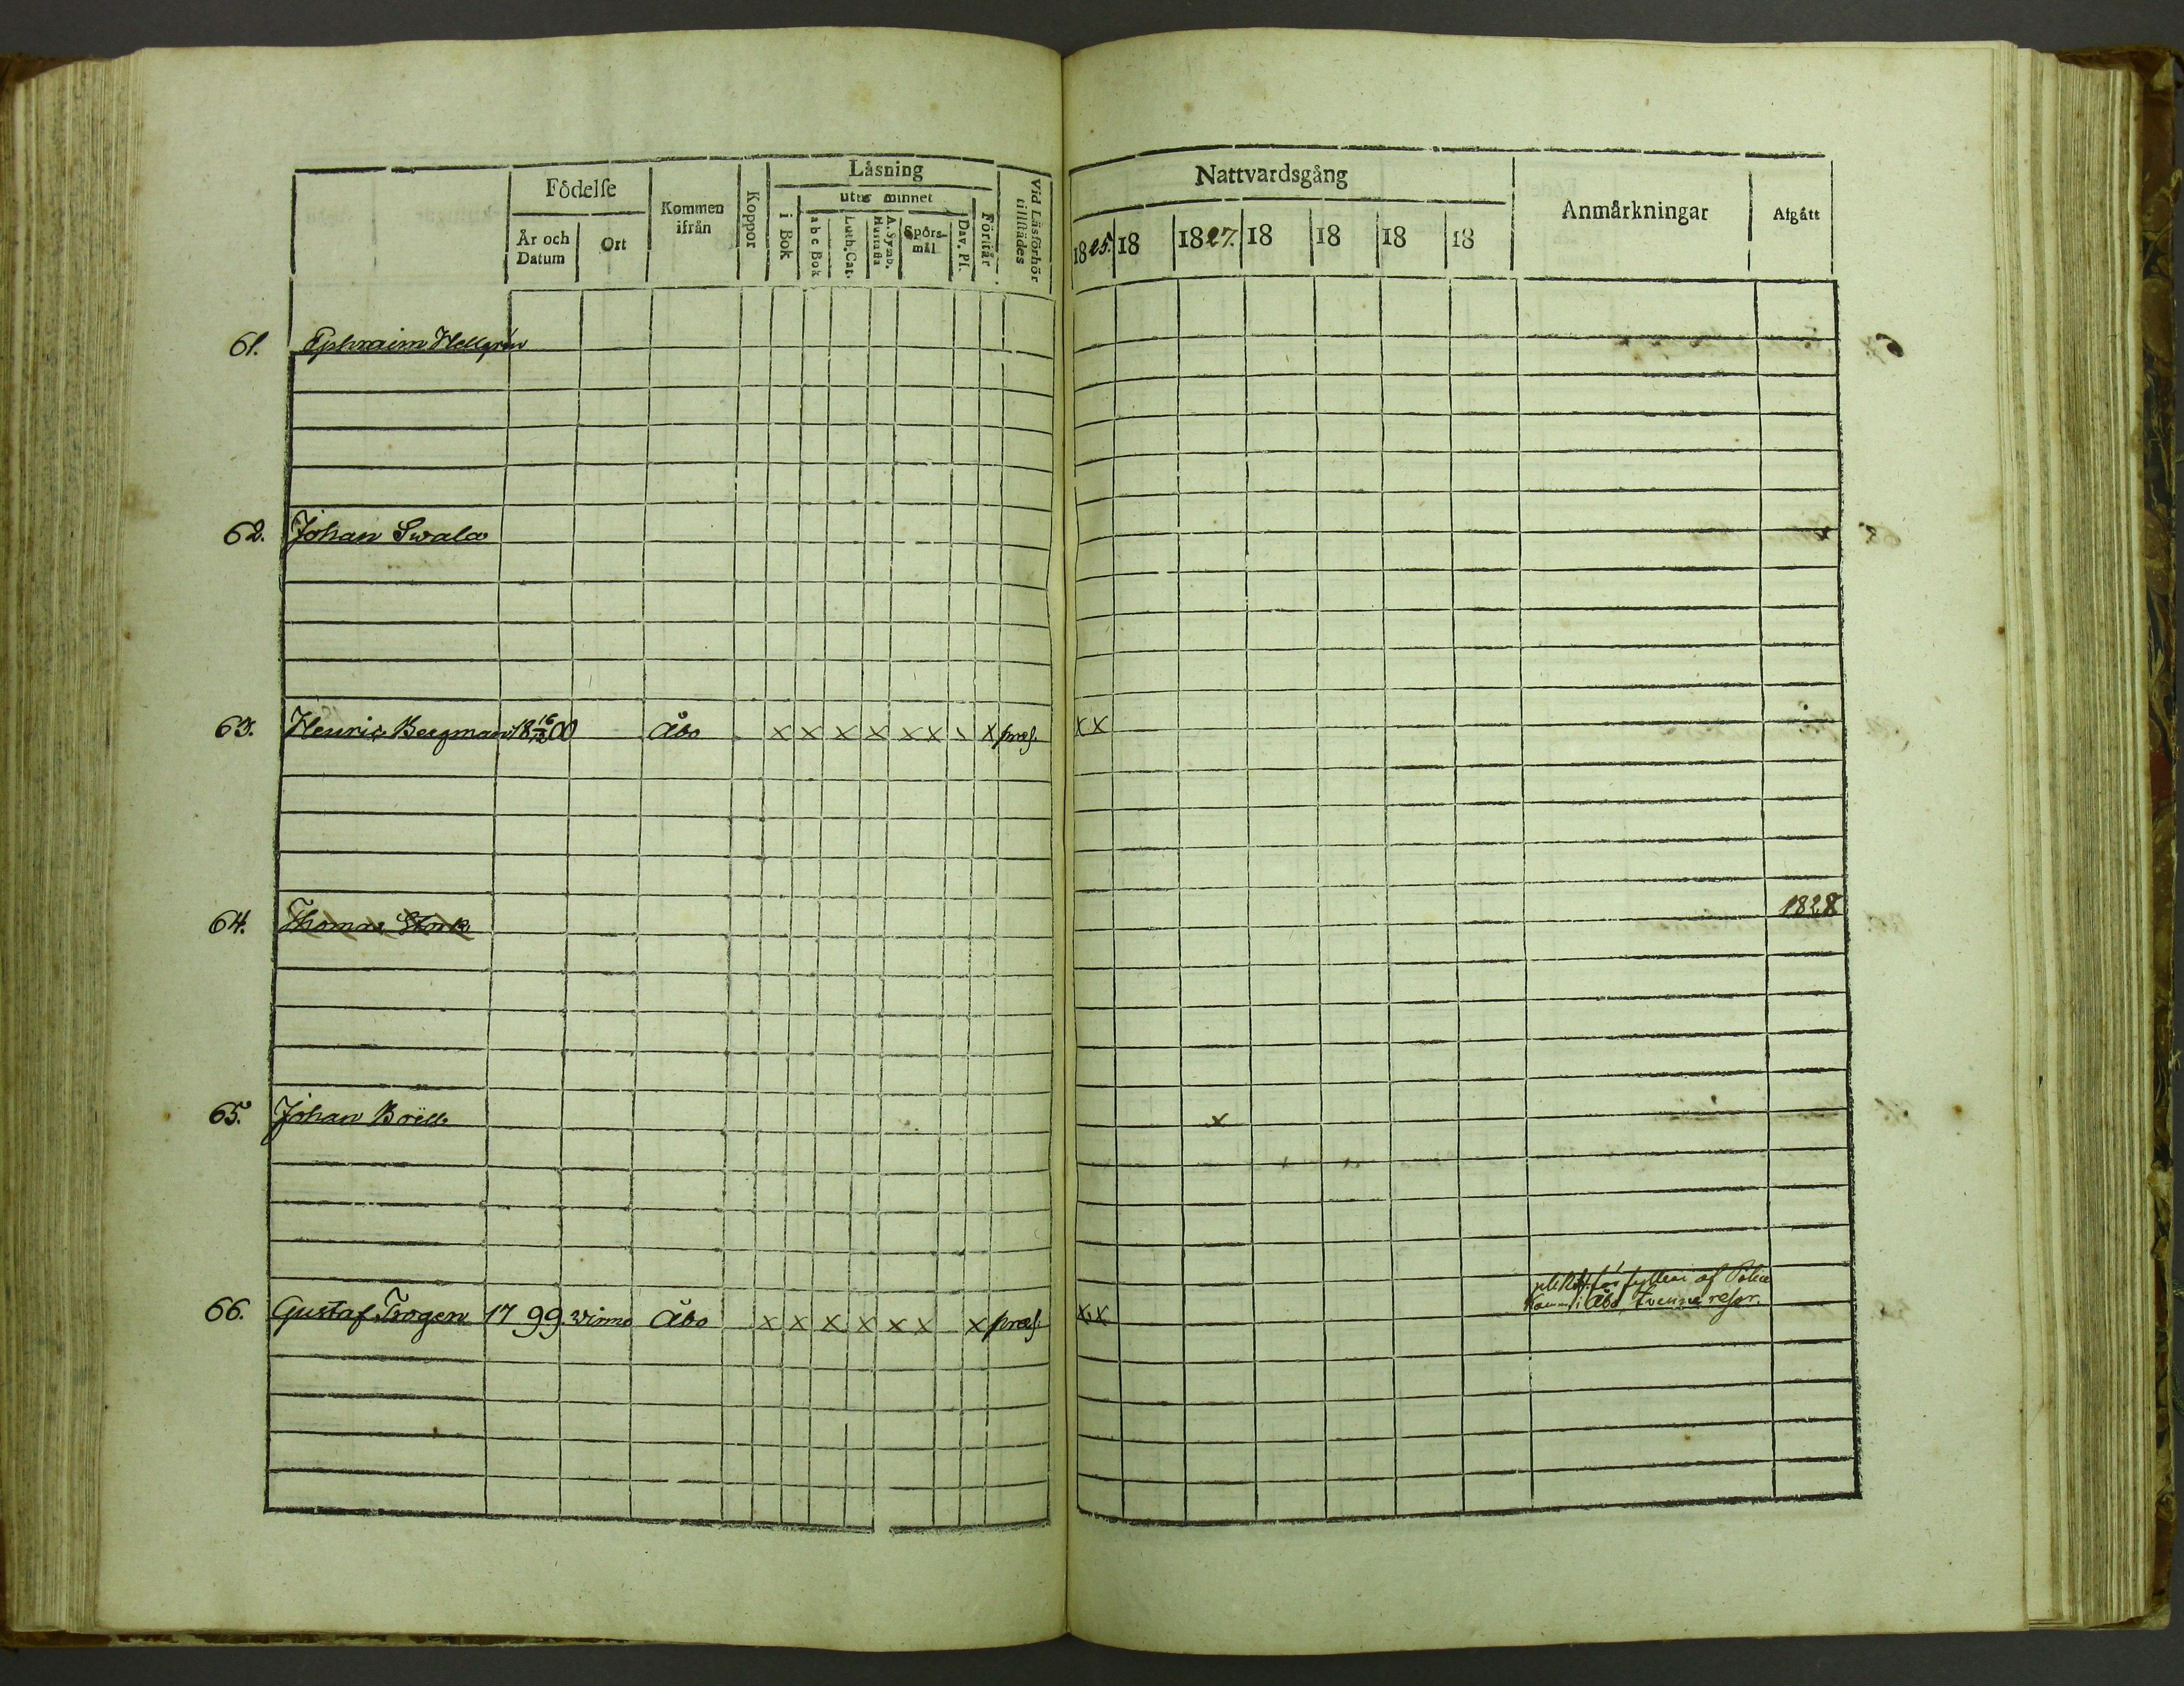 Födelse
År och Datum
Ort
Kommen ifrån
Koppor
Läsning
i Bok
utur minnet
a b c Bok
Luth. Cat.
A. Symb. Hustafla
Spörsmål
Dav. Ps.
Förstår
Vid Läsförhör tillstädes
Nattvardsgång
1825. 18 1827. 18 18 18 18
Anmärkningar
Afgått
61. Ephraim Hellgrén
62. Johan Swala
63. Henric Bergman 18 16/12 00 Åbo x x x x x x x x præs. x x
64. Thomas Stork 1828
65. Johan Boëll x
66. Gustaf Trogen 1799 Virmo Åbo x x x x x x x præs. x x
plikt. för fylleri af Police
Kamm. i Åbo, tvenne resor.